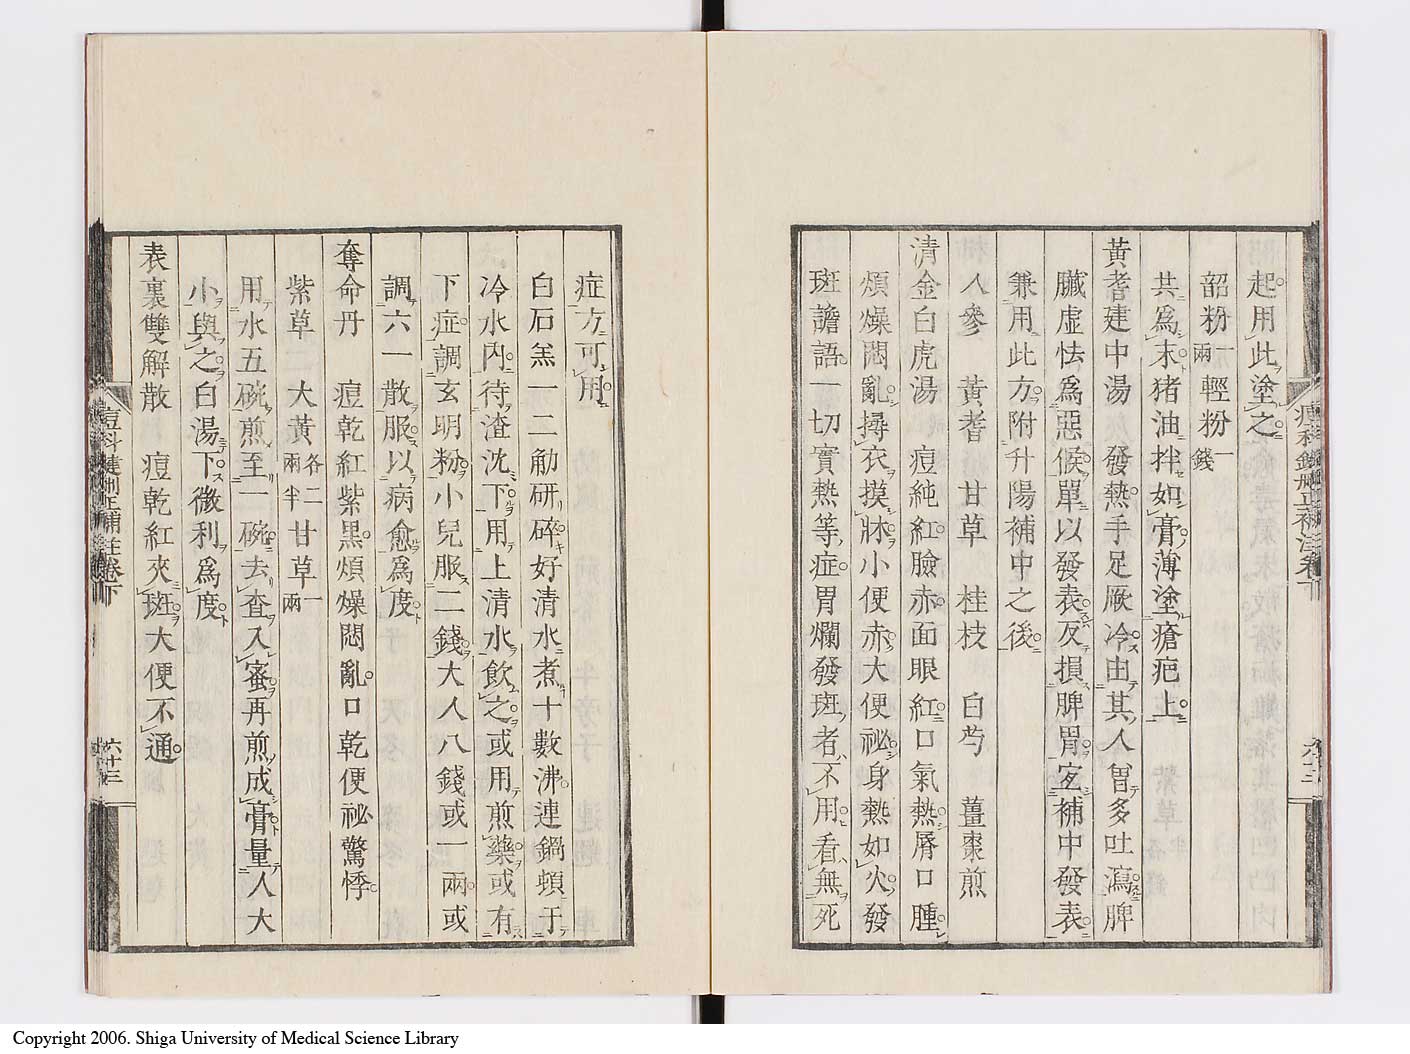 起用此塗之
韶粉一兩 輕粉一錢
共為末猪油拌如膏薄塗瘡疤上
黃耆建中湯 發熱手足厥冷由其人胃多吐瀉脾
臟虛怯為惡候單以發表反損脾胃宜補中發表
兼用此方附升陽補中之後
人參 黃耆 甘草 桂枝 白芍 薑棗煎
清金白虎湯 痘純紅臉赤面眼紅口氣熱唇口腫
煩燥悶亂撏衣摸牀小便赤大便祕身熱如火發
斑譫語一切實熱等症胃爛發斑者不用看無死
症方可用
白石羔一二觔研碎好清水煮十數沸連鍋頓于
冷水內待渣沈下用上清水飲之或用煎藥或有
下症調玄明粉小兒服二錢大人八錢或一兩或
調六一散服以病愈為度
奪命丹 痘乾紅紫黑煩燥悶亂口乾便祕驚悸
紫草二 大黃各二兩半 甘草一兩
用水五碗煎至一碗去查入蜜再煎成膏量人大
小與之白湯下微利為度
表裏雙解散 痘乾紅夾斑大便不通
痘科鍵刪正補註卷下
六十三
Copyright 2006. Shiga University of Medical Science Library